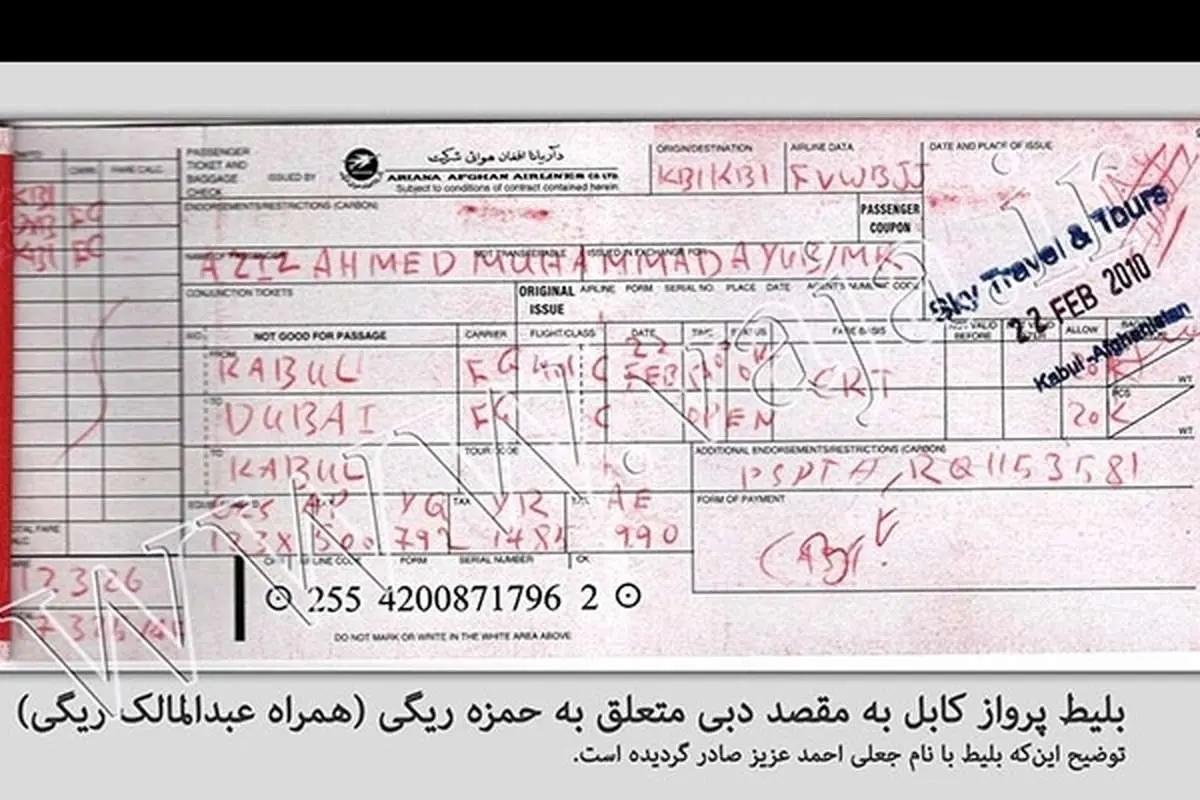 PASSENGER
TICKET AND
BAGGAGE
CHECK
ISSUED BY
دآریانا افغان هوائی شرکت
ARIANA AFGHAN AIRLINES CO LTD.
Subject to conditions of contract contained herein
ORIGIN/DESTINATION
KBI KBI
AIRLINE DATA
FVWBJJ
DATE AND PLACE OF ISSUE
FARE CALC.
ENDORSEMENTS/RESTRICTIONS (CARBON)
PASSENGER
COUPON
Sky Travel & Tours
22 FEB 2010
Kabul - Afghanistan
NOT TRANSFERABLE ISSUED IN EXCHANGE FOR
AZIZ AHMED MUHAMMAD AYUB/MR
CONJUNCTION TICKETS
ORIGINAL
ISSUE
AIRLINE FORM SERIAL NO. PLACE DATE AGENT'S NUMERIC CODE
NOT GOOD FOR PASSAGE CARRIER FLIGHT/CLASS DATE TIME STATUS FARE BASIS NOT VALID BEFORE ALLOW
FROM
KABUL FG 401 C 22 FEB CRT
TO
DUBAI FG C OPEN 20 K
PCS
WT
TO
KABUL
TOUR CODE
ADDITIONAL ENDORSEMENTS/RESTRICTIONS (CARBON)
PSPT# RQ1153581
TAX YQ YR AE
792 990
FORM OF PAYMENT
FORM SERIAL NUMBER CK
255 4200871796 2
DO NOT MARK OR WRITE IN THE WHITE AREA ABOVE
17326
www.vaja.ir
بلیط پرواز کابل به مقصد دبی متعلق به حمزه ریگی (همراه عبدالمالک ریگی)
توضیح این‌که بلیط با نام جعلی احمد عزیز صادر گردیده است.